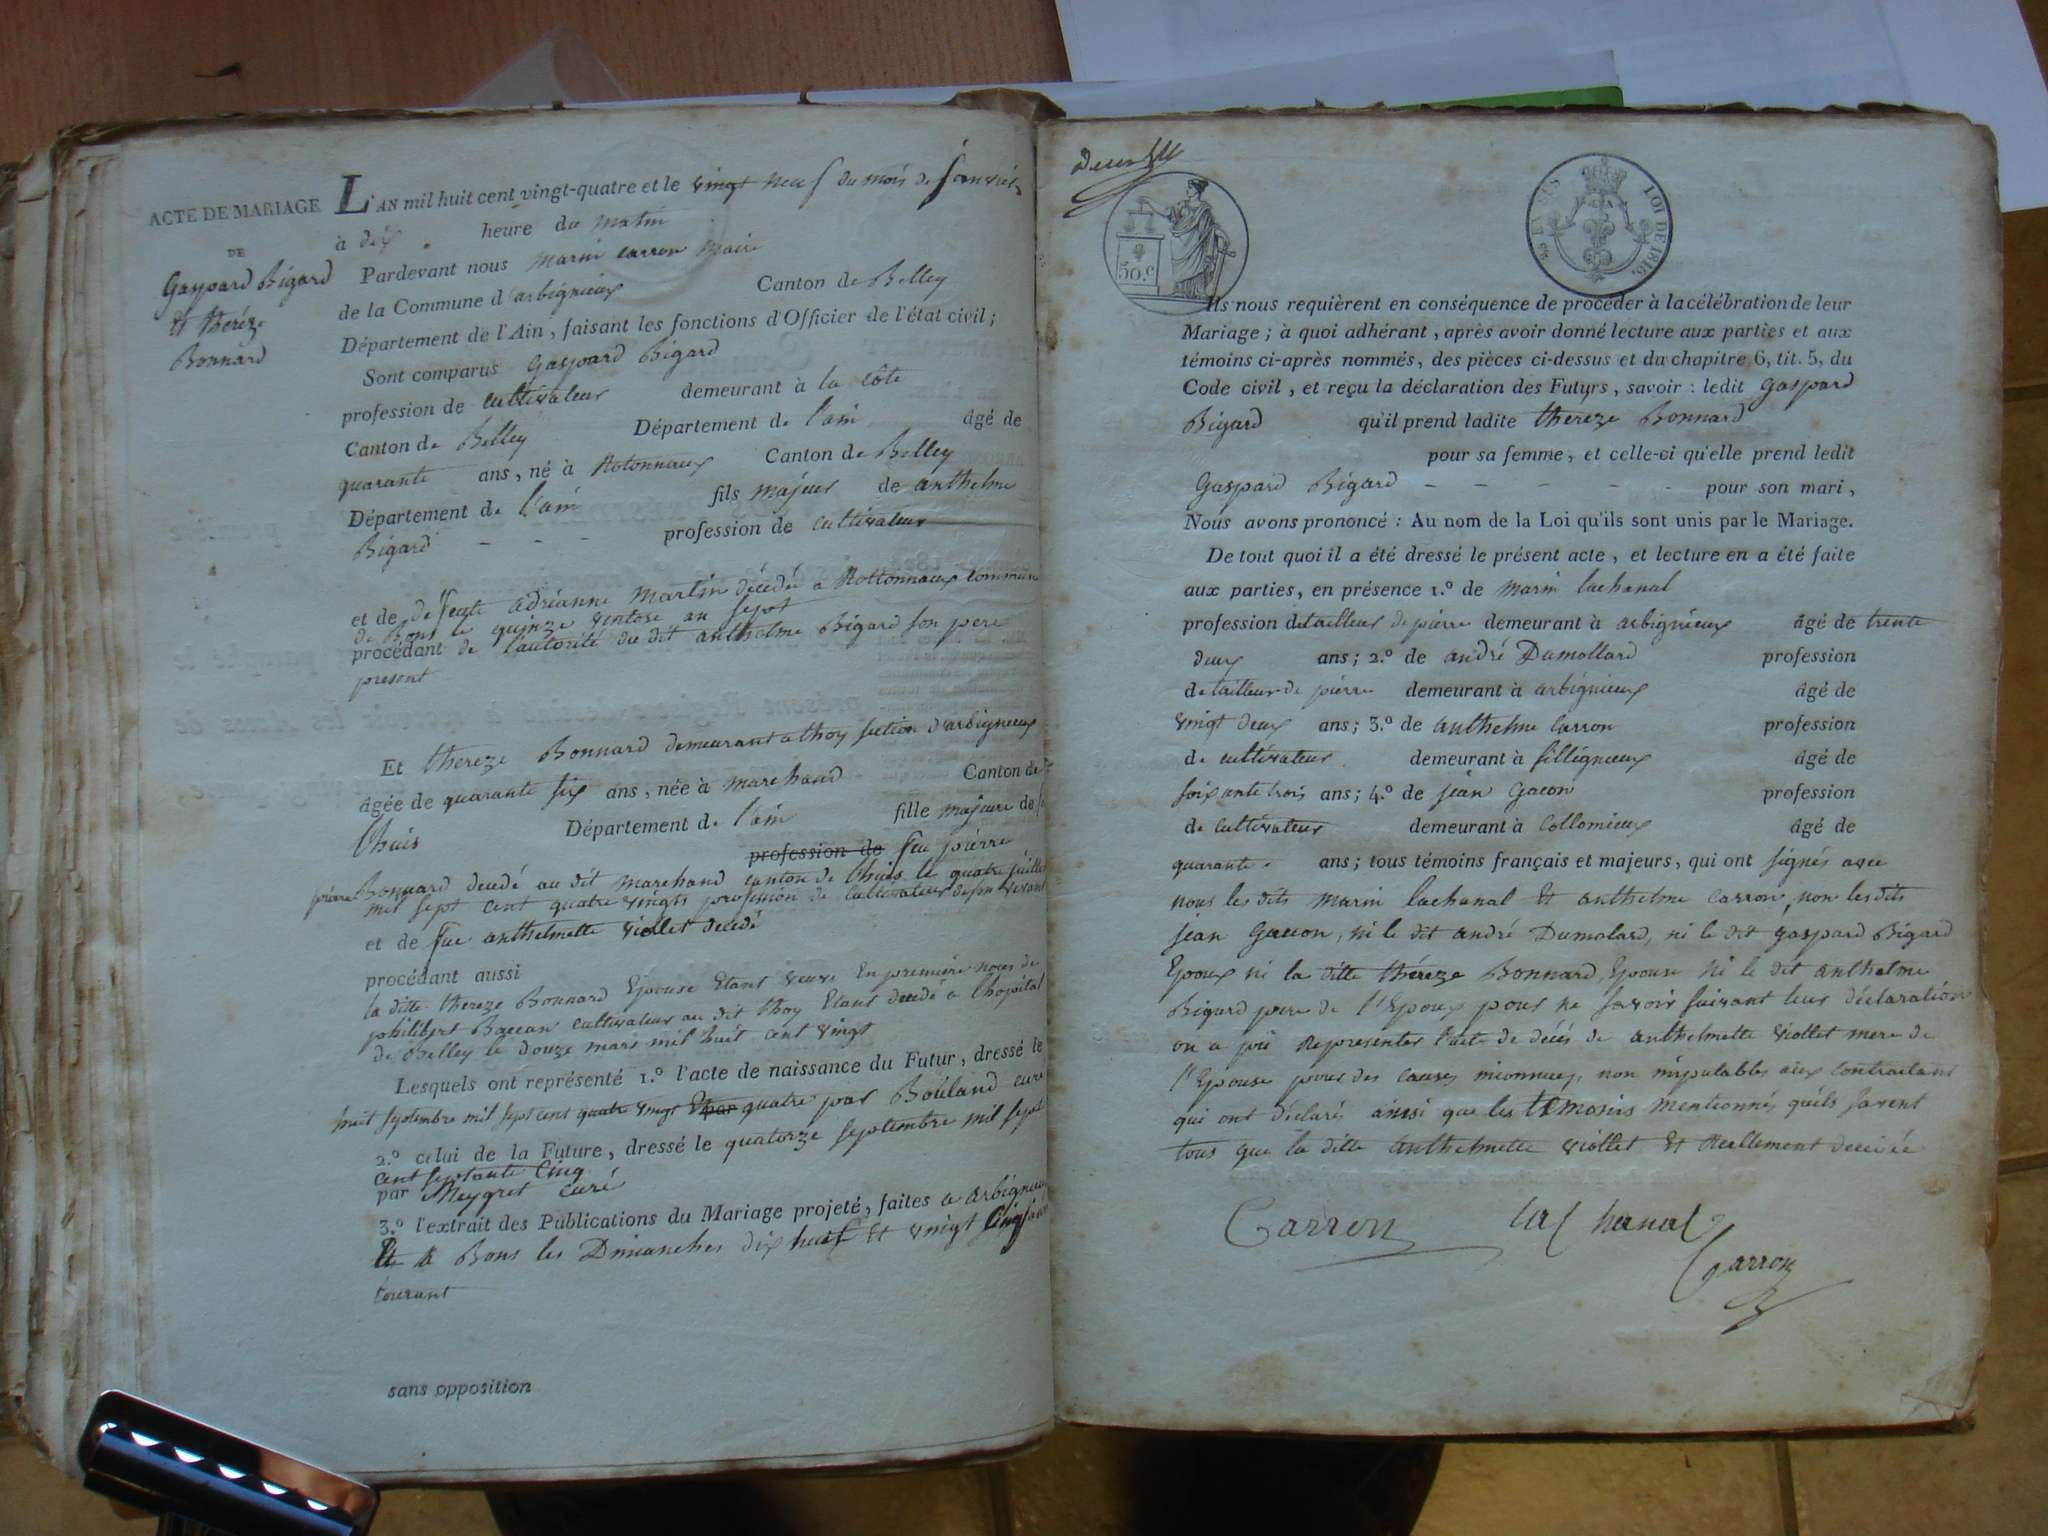 ACTE DE MARIAGE
DE
Gaspard Bigard
Et thereze
Bonnard
L'AN mil huit cent vingt-quatre et le vingt neuf du mois de janvier
à dix heure du matin
Pardevant nous marin carron maire
de la Commune d'arbignieux Canton de Belley
Département de l'Ain, faisant les fonctions d'Officier de l'état civil;
Sont comparus Gaspard Bigard
profession de cultivateur demeurant à la côte
Canton de Belley Département de l'ain âgé de
quarante ans, né à Rotonnaux Canton de Belley
Département de l'ain fils majeur de anthelme
Bigard - - - profession de cultivateur
et de defeute adrianne martin décédée a Rottonnaux commune
de Bons le quinze ventose an sept
procédant de l'autorité du dit anthelme Bigard son pere
present
Et thereze Bonnard demeurant a thoy section d'arbignieux
âgée de quarante six ans, née à marchand Canton de
lhuis Département de l'ain fille majeure de
profession de feu pierre
pierre Bonnard decedé au dit marchand canton de lhuis le quatre juillet
mil sept cent quatre vingts profession de cultivateur de son vivant
et de fue anthelmette viollet decedé
procédant aussi
la ditte thereze Bonnard Epouse Etant veuve En premiere noces de
philibert Baccan cultivateur au dit thoy Etant decedé a lhopital
de Belley le douze mars mil huit cent vingt
Lesquels ont représenté 1.º l'acte de naissance du Futur, dressé le
huit septembre mil sept cent quatre vingt Et par quatre par Bouland curé
2.º celui de la Future, dressé le quatorze septembre mil sept
cent septante cinq
par Meygret curé
3.º l'extrait des Publications du Mariage projeté, faites a arbignieux
Et a Bons les Dimanches dix huit Et vingt cinq
courant
sans opposition
50.C
LOI DE 1816.
Ils nous requièrent en conséquence de procéder à la célébration de leur
Mariage; à quoi adhérant, après avoir donné lecture aux parties et aux
témoins ci-après nommés, des pièces ci-dessus et du chapitre 6, tit. 5, du
Code civil, et reçu la déclaration des Futurs, savoir: ledit Gaspard
Bigard qu'il prend ladite thereze Bonnard
pour sa femme, et celle-ci qu'elle prend ledit
Gaspard Bigard - - - - - pour son mari,
Nous avons prononcé: Au nom de la Loi qu'ils sont unis par le Mariage.
De tout quoi il a été dressé le présent acte, et lecture en a été faite
aux parties, en présence 1.º de marin lachanal
profession de tailleur de pierre demeurant à arbignieux âgé de trente
deux ans; 2.º de andré Dumollard profession
de tailleur de pierre demeurant à arbignieux âgé de
vingt deux ans; 3.º de anthelme carron profession
de cultivateur demeurant à fillignieux âgé de
soixante trois ans; 4.º de jean Gacon profession
de cultivateur demeurant à Collomieux âgé de
quarante ans; tous témoins français et majeurs, qui ont signés avec
nous les dits marin lachanal Et anthelme carron, non les dits
jean Gaccon, ni le dit andré Dumolard, ni le dit gaspard Bigard
Epoux ni la ditte théreze Bonnard, Epouse ni le dit anthelme
Bigard pere de l'Epoux pour ne savoir suivant leur déclaration
on a pü Representer l'acte de décés de anthelmette viollet mere de
l'Epouse pour des causes inconnues, non imputables aux contractant
qui ont déclarés ainsi que les témonis mentionnés qu'ils savent
tous que la ditte anthelmette viollet Et Reellement decedée
Carron lachanal
Carron